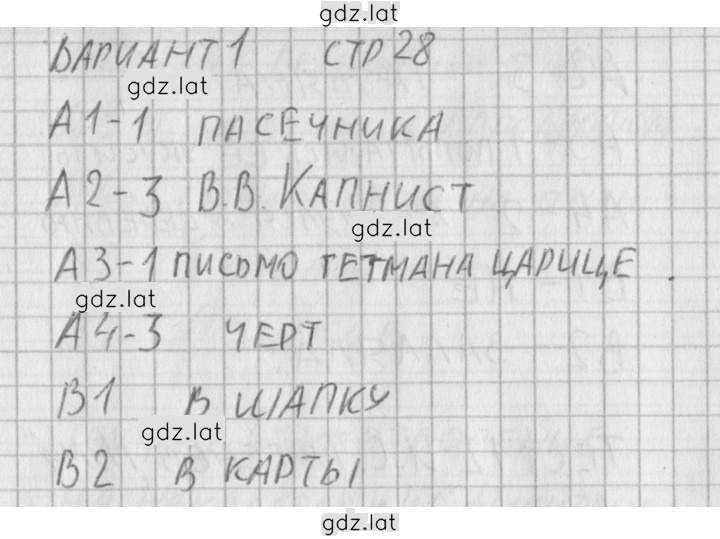 gdz.lat
ВАРИАНТ 1 СТР 28
gdz.lat
А1-1 ПАСЕЧНИКА
А2-3 В.В. КАПНИСТ
gdz.lat
А3-1 ПИСЬМО ГЕТМАНА ЦАРИЦЕ.
gdz.lat
А4-3 ЧЕРТ
В1 В ШАПКУ
gdz.lat
В2 В КАРТЫ
gdz.lat